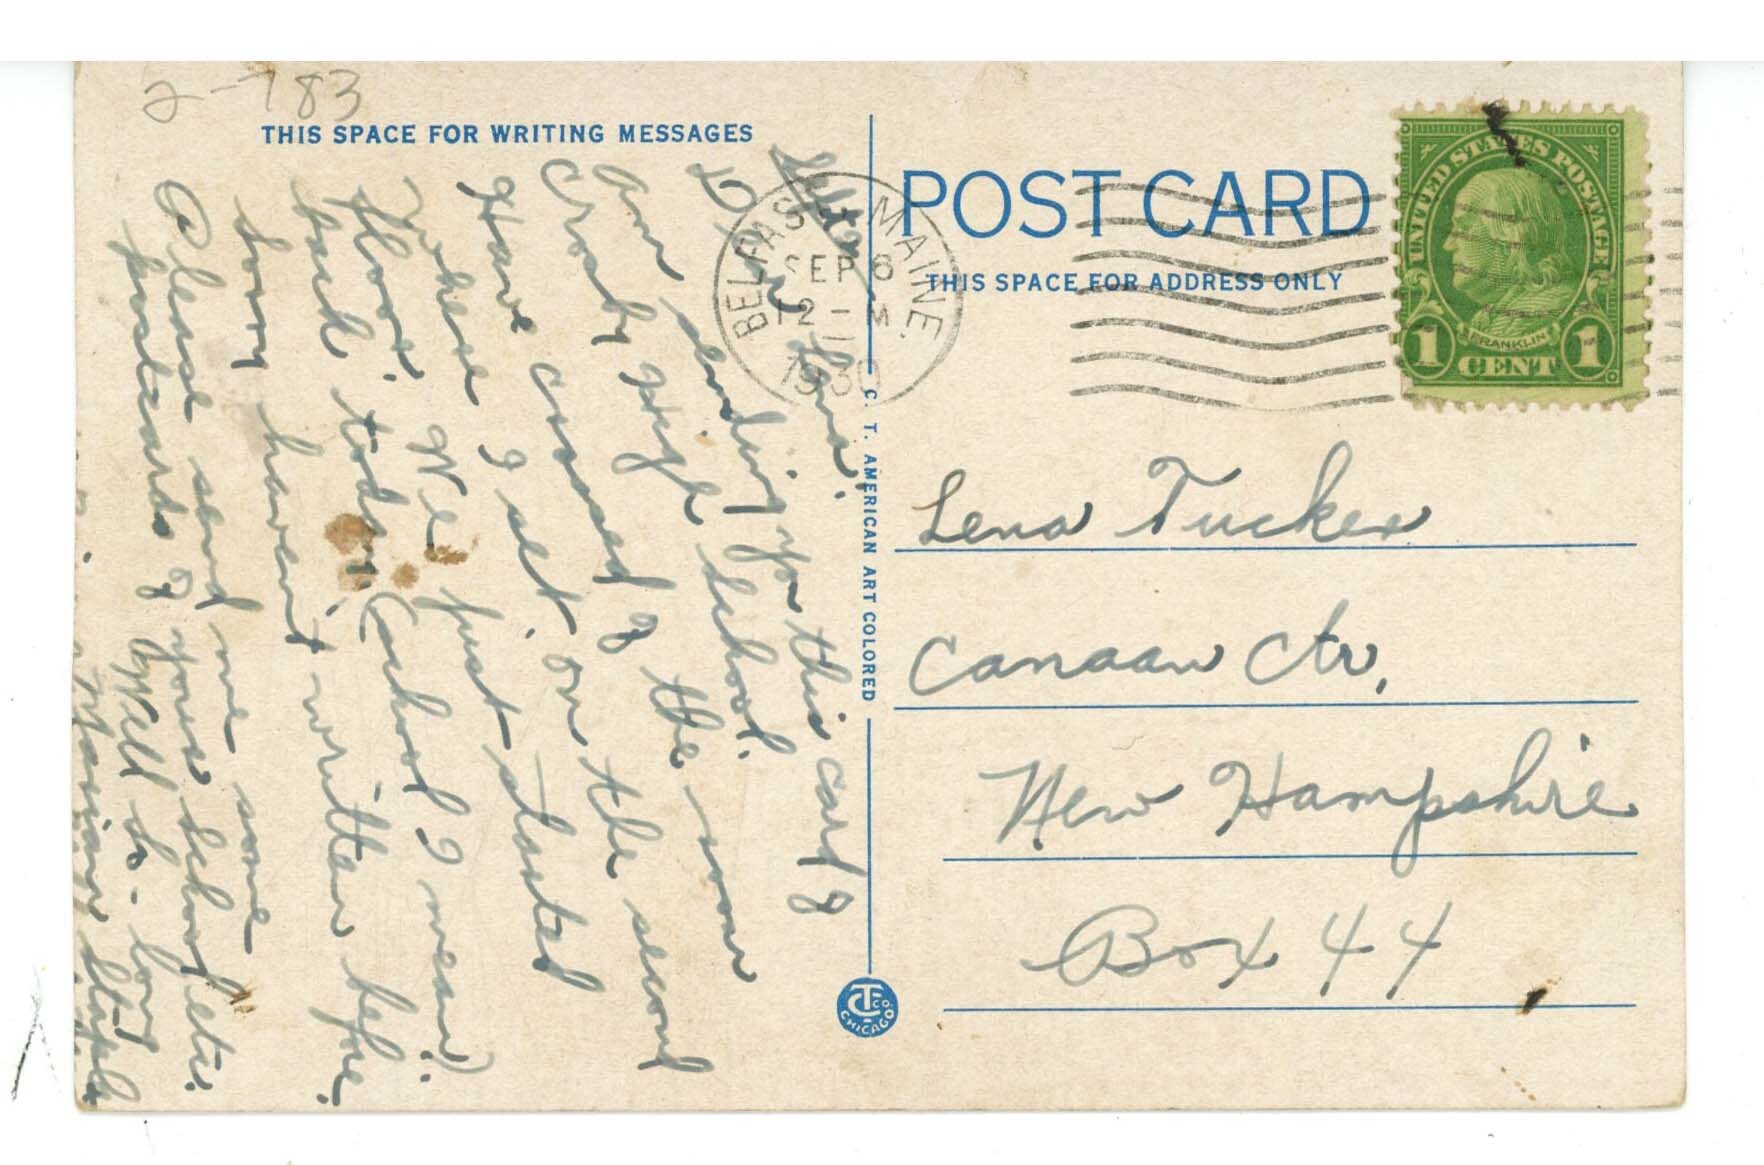 2-783
THIS SPACE FOR WRITING MESSAGES
Dear Lena.
Am sending you this card of
Crosby High School.
Have crossed of the room
where I set on the second
floor. We just started
back today. (school I mean).
Sorry haven't written before.
Please send me some
postcards of your school etc.
Well so-long
Marian Staples
BELFAST MAINE.
SEP 8
12-M
1930
POST CARD
THIS SPACE FOR ADDRESS ONLY
UNITED STATES POSTAGE
FRANKLIN
1 CENT 1
C. T. AMERICAN ART COLORED
Lena Tucker
Canaan Ctr.
New Hampshire
Box 44
CT CO.
CHICAGO